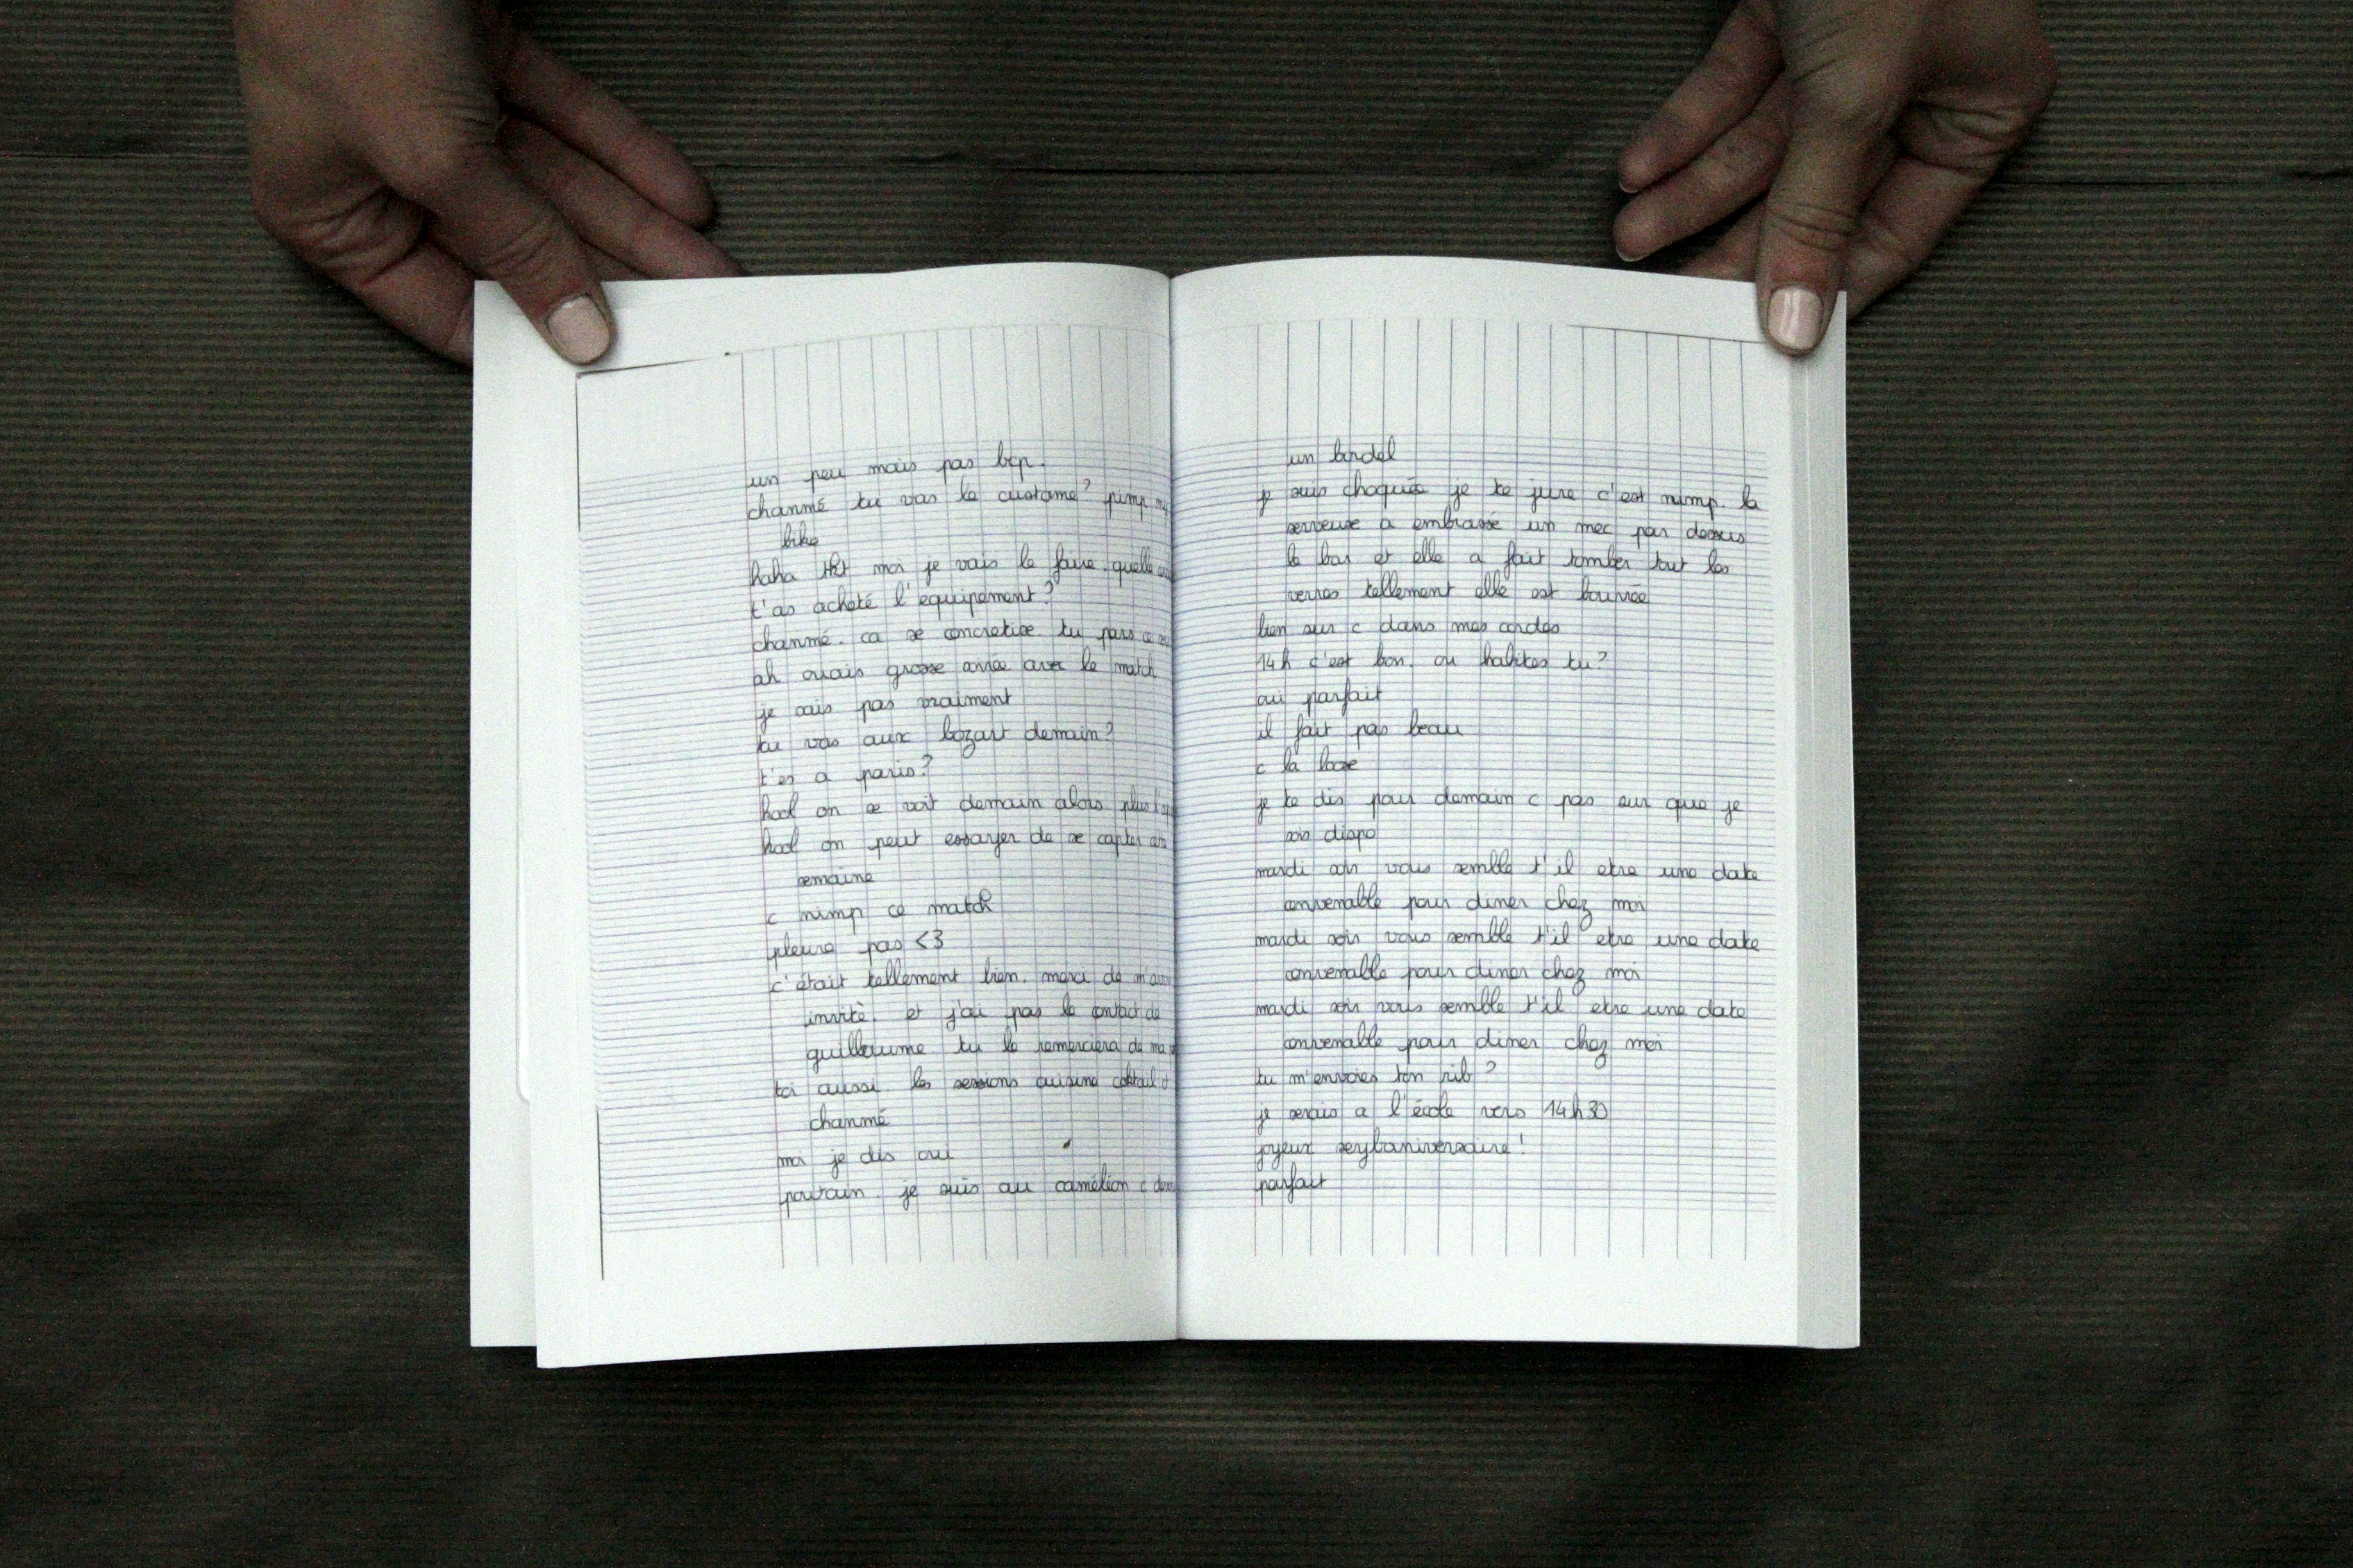 un peu mais pas bcp.
chanmé tu vas le customé? pimp my
bike
haha tkt moi je vais le faire. quelle
t'as acheté l'equipement?
chanmé. ca se concretise. tu pars ce
ah ouais grosse soirée avec le match
je sais pas vraiment
tu vas aux bozart demain?
t'es a paris?
hool on se voit demain alors
hool on peut essayer de se capter
semaine
c nimp ce match
pleure pas <3
c'était tellement bien. merci de m'avoir
invité. et j'ai pas le contact de
guillaume tu le remerciera de ma
toi aussi. les sessions cuisine coktail
chanmé
moi je dis oui
poutain. je suis au camélion c dans
un bordel
je suis choquée je te jure c'est nimp. la
serveuse a embrassé un mec par dessus
le bar et elle a fait tomber tout les
verres tellement elle est bourrée
bien sur c dans mes cordes
14h c'est bon. ou habites tu?
oui parfait
il fait pas beau
c la loose
je te dis pour demain c pas sur que je
sois dispo
mardi soir vous semble t'il etre une date
convenable pour diner chez moi
mardi soir vous semble t'il etre une date
convenable pour diner chez moi
mardi soir vous semble t'il etre une date
convenable pour diner chez moi
tu m'envoies ton rib?
je serais a l'école vers 14h30
joyeux seylaniversaire!
parfait